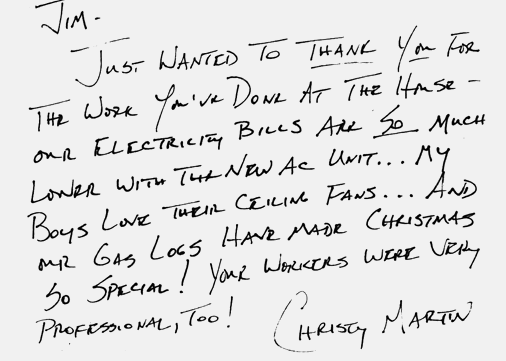 JIM-
JUST WANTED TO THANK YOU FOR
THE WORK YOU'VE DONE AT THE HOUSE -
OUR ELECTRICITY BILLS ARE SO MUCH
LOWER WITH THE NEW AC UNIT... MY
BOYS LOVE THEIR CEILING FANS... AND
OUR GAS LOGS HAVE MADE CHRISTMAS
SO SPECIAL! YOUR WORKERS WERE VERY
PROFESSIONAL, TOO!
CHRISTY MARTIN